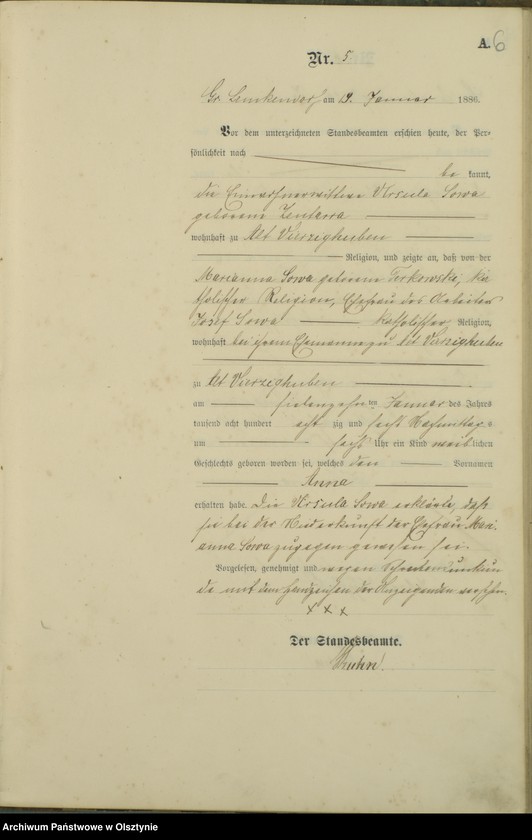 A. 6
Nr. 5
Gr. Lemkendorf am 19. Januar 1886.
Vor dem unterzeichneten Standesbeamten erschien heute, der Per-
sönlichkeit nach
be kannt,
die Einwohnerwittwe Ursula Sowa
geborene
wohnhaft zu Alt Vierzighuben
Religion, und zeigte an, daß von der
Marianna Sowa geborene Turkowski, ka
tholischer Religion, Ehefrau des Arbeiters
Josef Sowa katholischer Religion,
wohnhaft bei ihrem Ehemanne zu Alt Vierzighuben
zu Alt Vierzighuben
am siebenzehnten Januar des Jahres
tausend acht hundert acht zig und sechs Nachmittags
um sechs Uhr ein Kind weiblichen
Geschlechts geboren worden sei, welches den Vornamen
Anna
erhalten habe. Die Ursula Sowa erklärte, daß
sie bei der Niederkunft der Ehefrau Mari-
anna Sowa zugegen gewesen sei.
Vorgelesen, genehmigt und wegen Schreibensunkun
de mit dem Handzeichen der Anzeigenden versehen.
x x x
Der Standesbeamte.
Archiwum Państwowe w Olsztynie